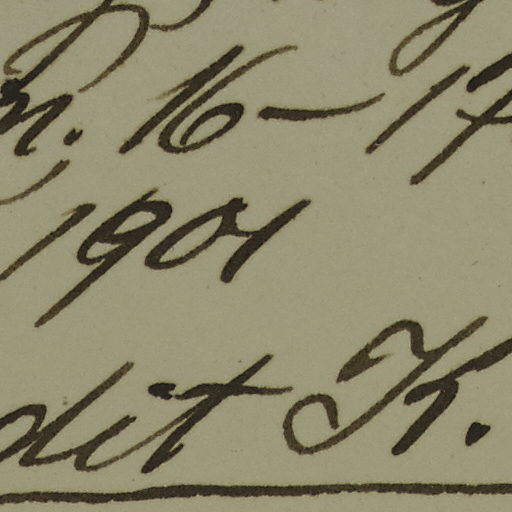 16-17
1901
dit K.